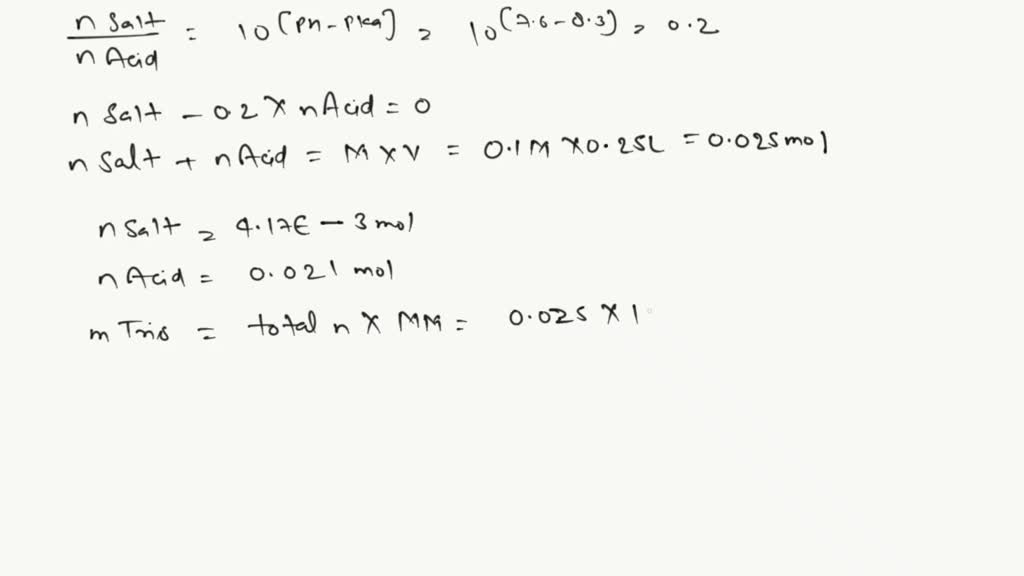 n Salt / n Acid = 10^(pH - pKa) = 10^(7.6 - 8.3) = 0.2
n Salt - 0.2 X n Acid = 0
n Salt + n Acid = M X V = 0.1M X 0.25L = 0.025mol
n Salt = 4.17E - 3 mol
n Acid = 0.021 mol
m Tris = total n X MM = 0.025 X 1